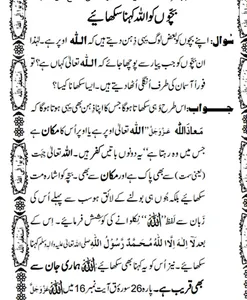 بچّوں کو اللہ کہنا سکھائیے
سوال: اپنے بچوں کو بعض لوگ یہی ذہن دیتے ہیں کہ اللہ اوپر ہے۔ لہٰذا
ان بچوں کو جب پیار سے پوچھا جائے کہ اللہ تعالیٰ کہاں ہے؟ تو
فوراً آسمان کی طرف اُنگلی اُٹھا دیتے ہیں۔ ایسا سکھانا کیسا؟
جواب: اس طرح وُہی سکھاتا ہوگا جس کا اپنا ذہن بھی یہی ہوتا ہوگا کہ
مَعَاذَاللہ عَزَّوَجَلَّ "اللہ تعالیٰ اوپر ہے یا اوپر اُس کا مکان ہے
جس میں وہ رہتا ہے" یہ دونوں باتیں کفر ہیں۔ اللہ تعالیٰ جِہَت
(یعنی سَمت) سے بھی پاک ہے اور مکان سے بھی۔ بچّے کو اشارہ مت
سکھائیے بلکہ جُوں ہی بولنے کے لائق ہو سب سے پہلے اُس کی
زبان سے لفظِ "اللہ" نکلوانے کی کوشش فرمائیے۔ اس کے
بعد لَا اِلٰہَ اِلَّا اللہُ مُحَمَّدٌ رَّسُوْلُ اللہ صلی اللہ تعالیٰ علیہ والہ وسلم کہنا
سکھائیے۔ نیز اُس کو یہ کہنا بھی سکھائیے اللہ ہماری جان سے
بھی قریب ہے۔ پارہ 26 سورۂ ق آیت نمبر 16 میں اللہ عَزَّوَجَلَّ